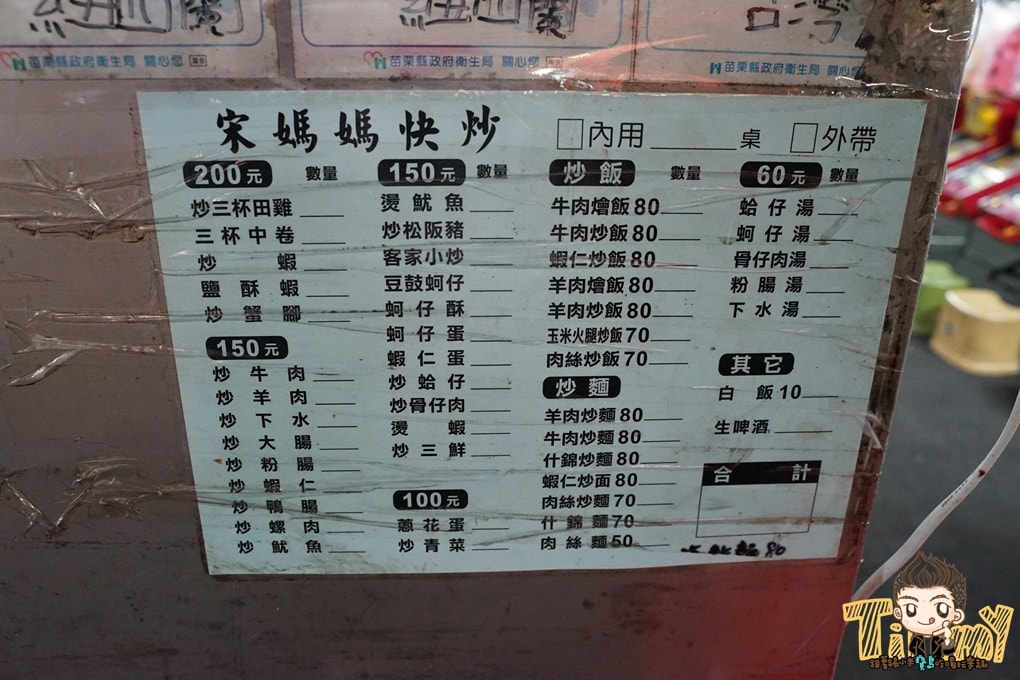 紐西蘭
紐西蘭
台灣
苗栗縣政府衛生局 關心您
苗栗縣政府衛生局 關心您
苗栗縣政府衛生局 關心您
宋媽媽快炒
□內用______桌 □外帶
200元 數量
炒三杯田雞
三杯中卷
炒蝦
鹽酥蝦
炒蟹腳
150元
炒牛肉
炒羊肉
炒下水
炒大腸
炒粉腸
炒蝦仁
炒鴨腸
炒螺肉
炒魷魚
150元 數量
燙魷魚
炒松阪豬
客家小炒
豆鼓蚵仔
蚵仔酥
蚵仔蛋
蝦仁蛋
炒蛤仔
炒骨仔肉
燙蝦
炒三鮮
100元
蔥花蛋
炒青菜
炒飯 數量
牛肉燴飯80
牛肉炒飯80
蝦仁炒飯80
羊肉燴飯80
羊肉炒飯80
玉米火腿炒飯70
肉絲炒飯70
炒麵
羊肉炒麵80
牛肉炒麵80
什錦炒麵80
蝦仁炒面80
肉絲炒麵70
什錦麵70
肉絲麵50
60元 數量
蛤仔湯
蚵仔湯
骨仔肉湯
粉腸湯
下水湯
其它
白飯10
生啤酒
合計
80
Timmy